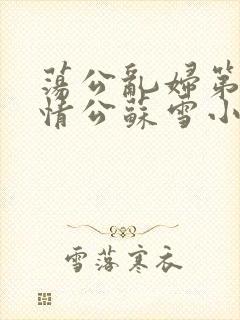 蕩公亂婦第
情公蘇雪小
雪落寒衣